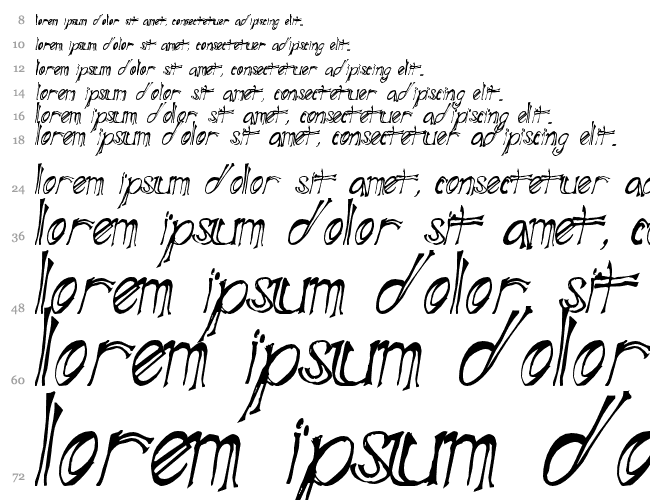 8 lorem ipsum dolor sit amet, consectetuer adipiscing elit.
10 lorem ipsum dolor sit amet, consectetuer adipiscing elit.
12 lorem ipsum dolor sit amet, consectetuer adipiscing elit.
14 lorem ipsum dolor sit amet, consectetuer adipiscing elit.
16 lorem ipsum dolor sit amet, consectetuer adipiscing elit.
18 lorem ipsum dolor sit amet, consectetuer adipiscing elit.
24 lorem ipsum dolor sit amet, consectetuer ad
36 lorem ipsum dolor sit amet, co
48 lorem ipsum dolor sit
60 lorem ipsum dolor
72 lorem ipsum do